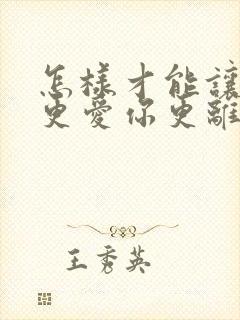 怎樣才能讓
更愛你更離
王秀英